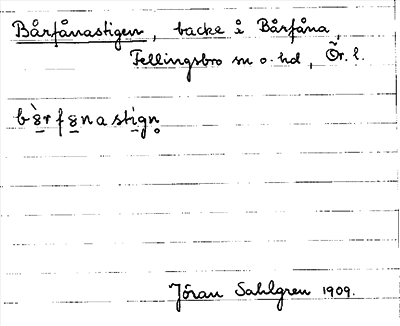 Bårfånastigen, backe å Bårfåna,
Fellingsbro sn o. hd, Ör. l.
Jöran Sahlgren 1909.